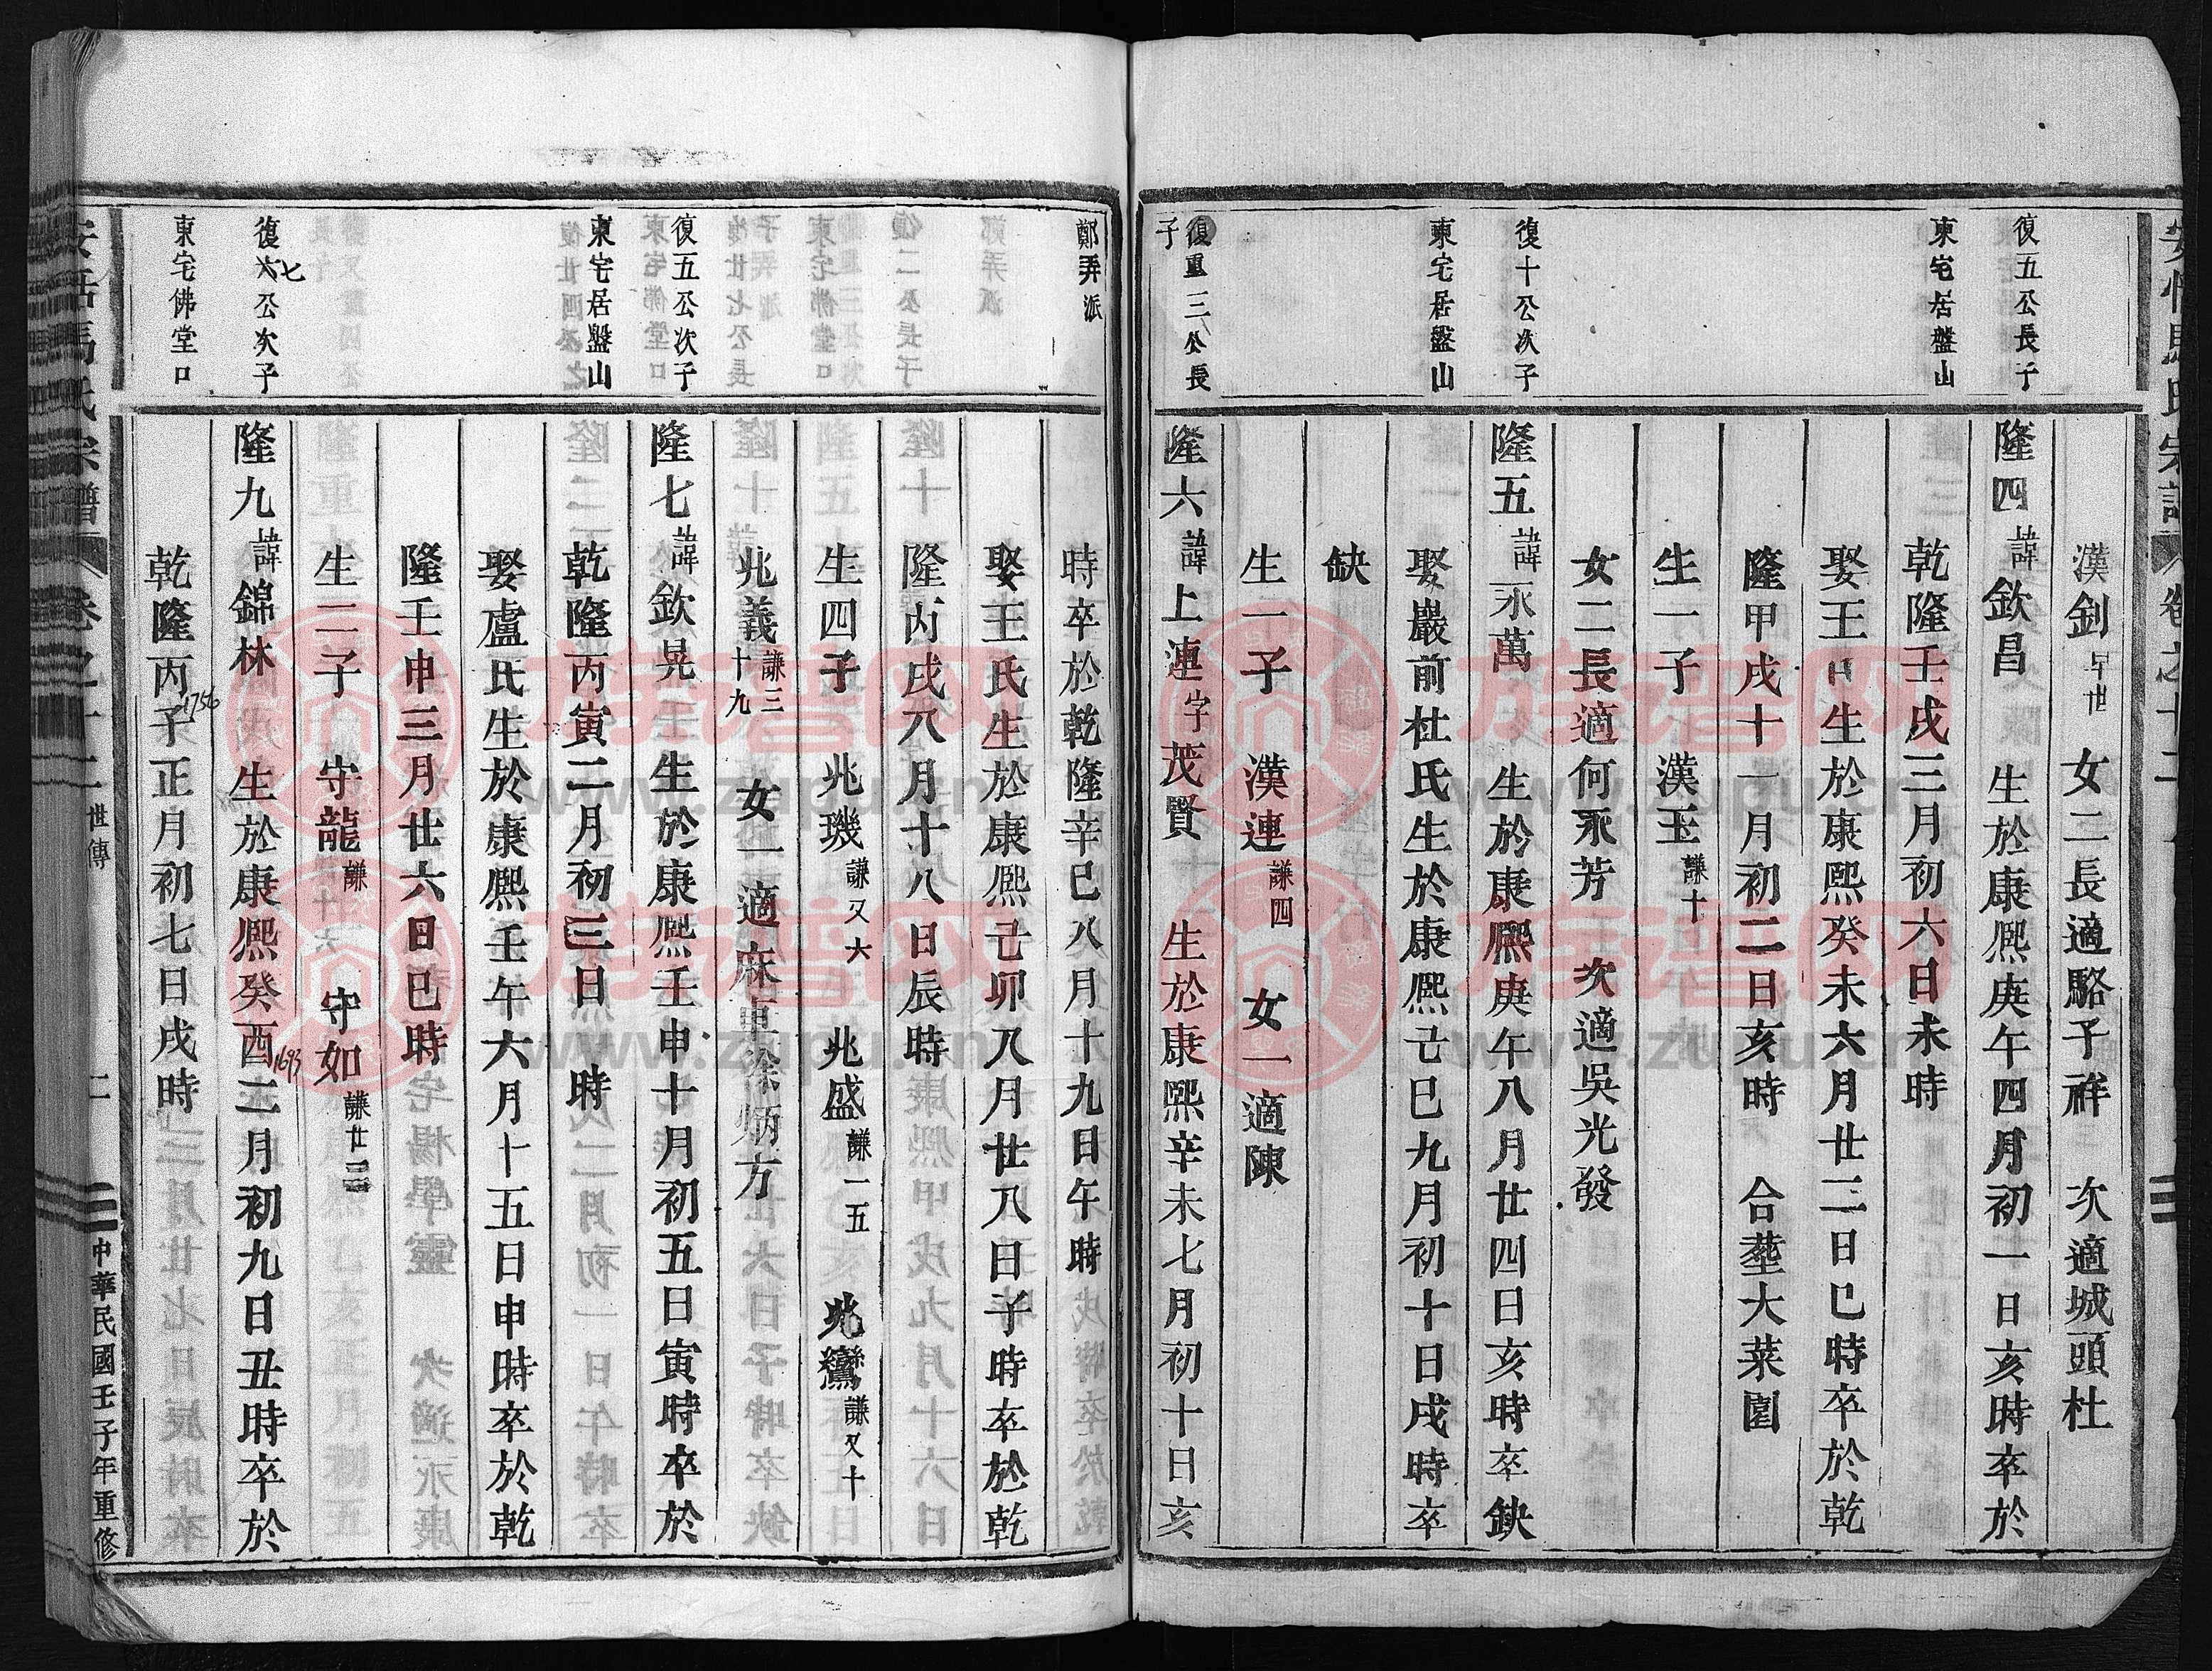 安恬馬氏宗譜
復五公長子
東宅居盤山
復十公次子
東宅居盤山
復重三公長
子
漢釗早世 女二長適駱子祥 次適城頭杜
隆四諱欽昌 生於康熙庚午四月初一日亥時卒於
乾隆壬戌三月初六日未時
娶王氏生於康熙癸未六月廿二日巳時卒於乾
隆甲戌十一月初二日亥時 合塟大菜園
生一子 漢玉謙十
女二長適何永芳 次適吳光發
隆五諱永萬 生於康熙庚午八月廿四日亥時卒缺
娶嚴前杜氏生於康熙己巳九月初十日戌時卒
缺
生一子 漢連謙四 女一適陳
隆六諱上連字茂賢 生於康熙辛未七月初十日亥
鄭弄派
復五公次子
東宅居盤山
復六七公次子
東宅佛堂口
時卒於乾隆辛巳八月十九日午時
娶王氏生於康熙己卯八月廿八日子時卒於乾
隆丙戌八月十八日辰時
生四子 兆璣謙又六 兆盛謙一五 兆鸞謙又十
兆義謙三十九 女一適麻車徐炳方
隆七諱欽晃 生於康熙壬申十月初五日寅時卒於
乾隆丙寅二月初三日 時
娶盧氏生於康熙壬午六月十五日申時卒於乾
隆壬申三月廿六日巳時
生二子 守龍謙 守如謙廿三
隆九諱錦林 生於康熙癸酉1693二月初九日丑時卒於
乾隆丙子1756正月初七日戌時
安恬馬氏宗譜 卷之十二 世傳 二 中華民國壬子年重修
族谱网
www.zupu.cn
族谱网
www.zupu.cn
族谱网
www.zupu.cn
族谱网
www.zupu.cn